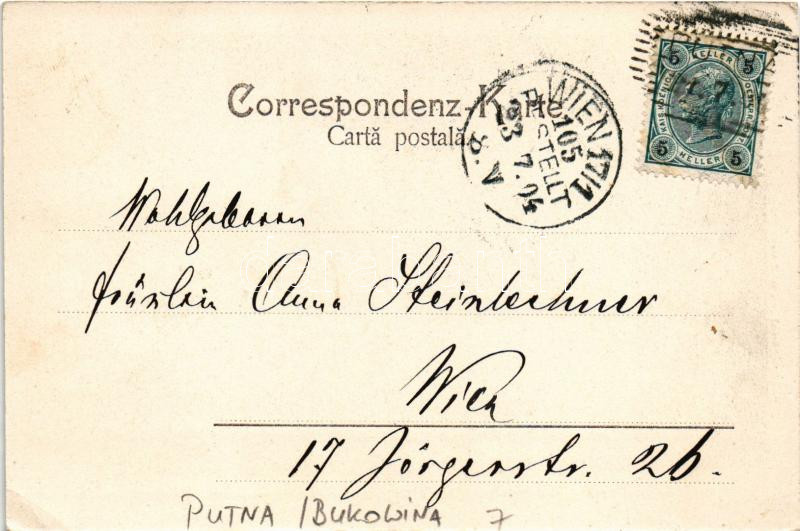 Correspondenz-Karte
Cartă postală.
WIEN 17/1
105
BESTELLT
23 7.04
8.V
5 HELLER 5
5 HELLER 5
Wohlgeboren
Fräulein Anna Steinlechner
Wien
17 Jörgerstr. 26.
PUTNA /BUKOWINA 7